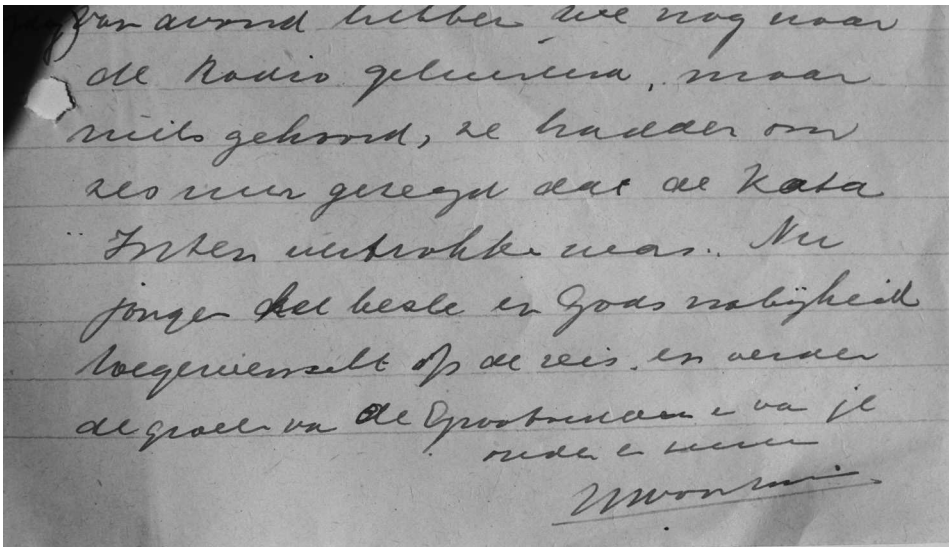 Van avond hebben we nog naar
de Radio geluisterd, maar
niets gehoord, ze hadden om
zes uur gezegd dat de Kota
Inten vertrokke was. Nu
jongen het beste en Gods nabijheid
toegewenscht op de reis. en verder
de groete van de en van je
ouder en